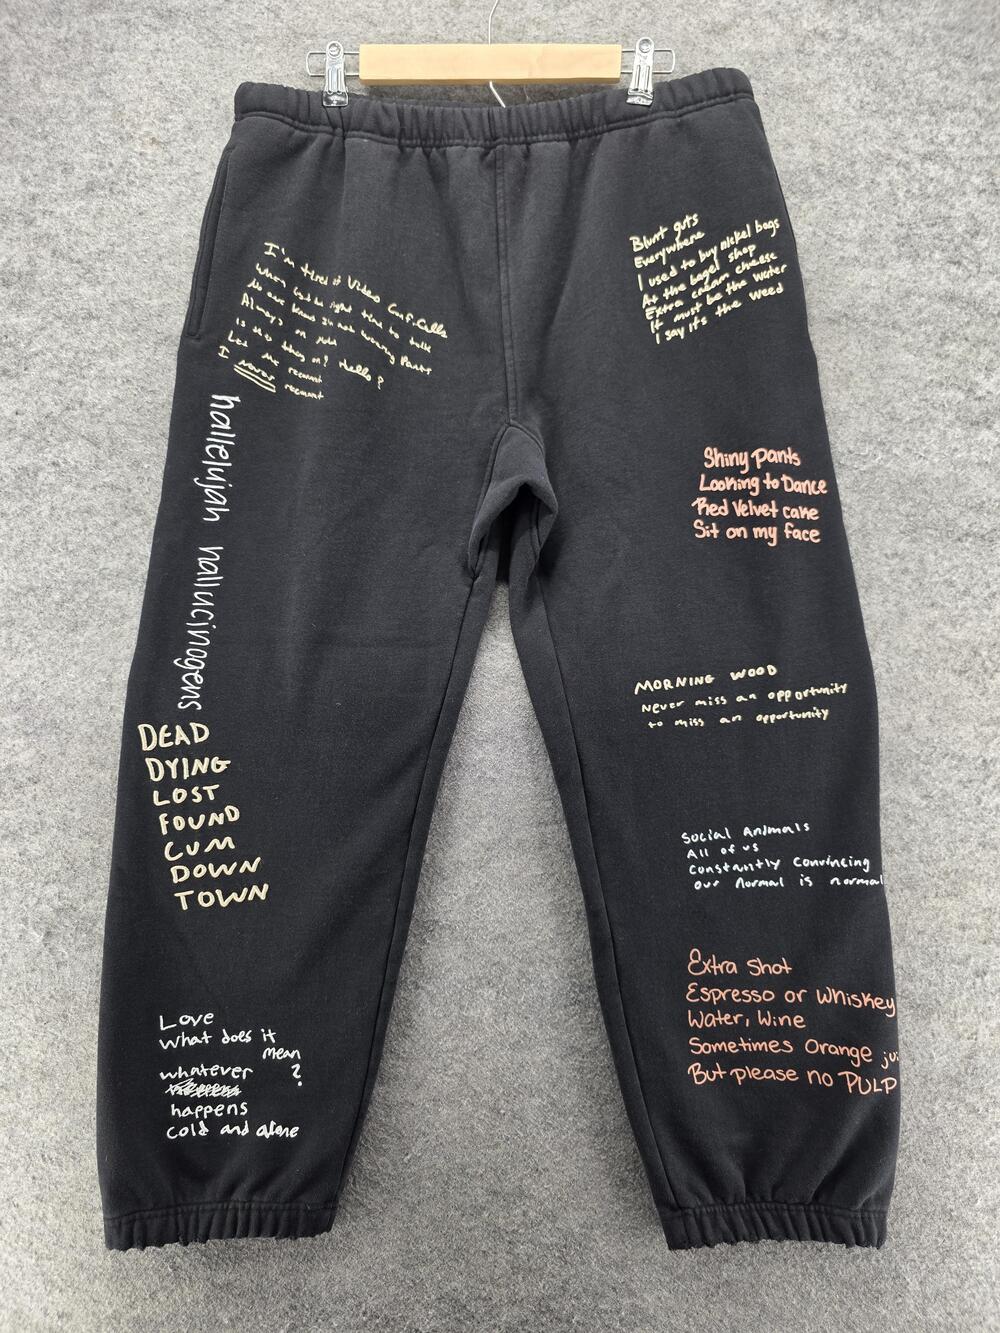 I'm tired of Video Conf. Calls
When
time to talk
No one knows I'm not wearing Pants
Always on
Is this thing on? Hello?
Let me
I never
hallelujah hallucinogens
DEAD
DYING
LOST
FOUND
CUM
DOWN
TOWN
Love
What does it
mean
whatever ?
happens
cold and alone
Blunt guts
Everywhere
I used to buy nickel bags
At the bagel shop
Extra cream cheese
It must be the water
I say it's the weed
Shiny Pants
Looking to Dance
Red Velvet cake
Sit on my face
MORNING WOOD
Never miss an opportunity
to miss an opportunity
Social Animals
All of us
Constantly Convincing
our Normal is normal
Extra Shot
Espresso or Whiskey
Water, Wine
Sometimes Orange jui
But please no PULP